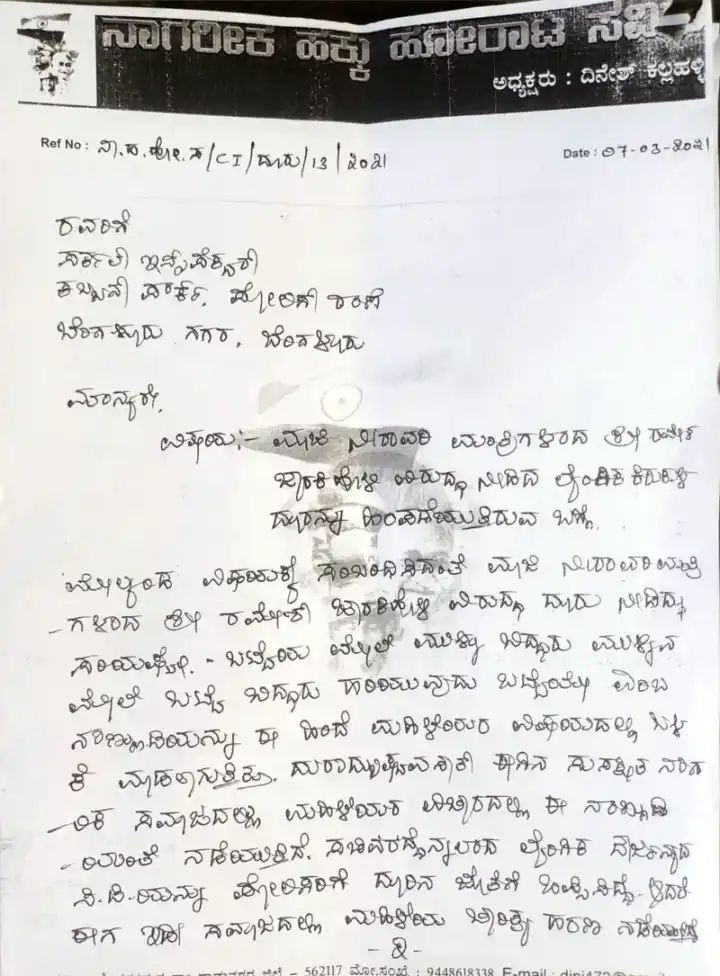 ನಾಗರೀಕ ಹಕ್ಕು ಹೋರಾಟ
ಅಧ್ಯಕ್ಷರು : ದಿನೇಶ್ ಕಲ್ಲಹಳ್ಳಿ
Ref No : ನಾ.ಹ.ಹೋ.ಸ/CI/ದೂರು/13/2021
Date : 07-03-2021
ರವರಿಗೆ
ಸರ್ಕಲ್ ಇನ್ಸ್‌ಪೆಕ್ಟರ್
ಕಬ್ಬನ್ ಪಾರ್ಕ್, ಪೋಲಿಸ್ ಠಾಣೆ
ಬೆಂಗಳೂರು ನಗರ, ಬೆಂಗಳೂರು
ಮಾನ್ಯರೇ,
ವಿಷಯ:- ಮಾಜಿ ನೀರಾವರಿ ಮಂತ್ರಿಗಳಾದ ಶ್ರೀ ರಮೇಶ
ಜಾರಕಿಹೊಳಿ ವಿರುದ್ಧ ನೀಡಿದ ಲೈಂಗಿಕ ಕಿರುಕುಳ
ದೂರನ್ನು ಹಿಂಪಡೆಯುತ್ತಿರುವ ಬಗ್ಗೆ.
ಮೇಲ್ಕಂಡ ವಿಷಯಕ್ಕೆ ಸಂಬಂದಿಸಿದಂತೆ ಮಾಜಿ ನೀರಾವರಿ ಮಂತ್ರಿ
-ಗಳಾದ ಶ್ರೀ ರಮೇಶ್ ಜಾರಕಿಹೊಳಿ ವಿರುದ್ಧ ದೂರು ನೀಡಿದ್ದು
ಸರಿಯಷ್ಟೇ. - ಬಟ್ಟೆಯ ಮೇಲೆ ಮುಳ್ಳು ಬಿದ್ದರು ಮುಳ್ಳಿನ
ಮೇಲೆ ಬಟ್ಟೆ ಬಿದ್ದರು ಹರಿಯುವುದು ಬಟ್ಟೆಯೇ ಎಂಬ
ನಾಣ್ಣುಡಿಯನ್ನು ಈ ಹಿಂದೆ ಮಹಿಳೆಯರ ವಿಷಯದಲ್ಲಿ ಬಳ
ಕೆ ಮಾಡಲಾಗುತ್ತಿತ್ತು. ದುರಾದೃಷ್ಟವಶಾತ್ ಈಗಿನ ಸುಸಕ್ಷಿತ ನಾಗ
-ರಿಕ ಸಮಾಜದಲ್ಲಿ ಮಹಿಳೆಯರ ವಿಚಾರದಲ್ಲಿ ಈ ನಾಣ್ಣುಡಿ
-ಯಂತೆ ನಡೆಯುತ್ತಿದೆ. ಸಚಿವರದ್ದೆನ್ನಲಾದ ಲೈಂಗಿಕ ದೌರ್ಜನ್ಯದ
ಸಿ.ಡಿ.ಯನ್ನು ಪೋಲಿಸರಿಗೆ ದೂರಿನ ಜೊತೆಗೆ ಒಪ್ಪಿಸಿದ್ದೆ. ಆದರೆ
ಈಗ ಇಡೀ ಸಮಾಜದಲ್ಲಿ ಮಹಿಳೆಯ ಚಾರಿತ್ರ್ಯ ಹರಣ
- 562117 ಮೋ.ಸಂಖ್ಯೆ : 9448618338